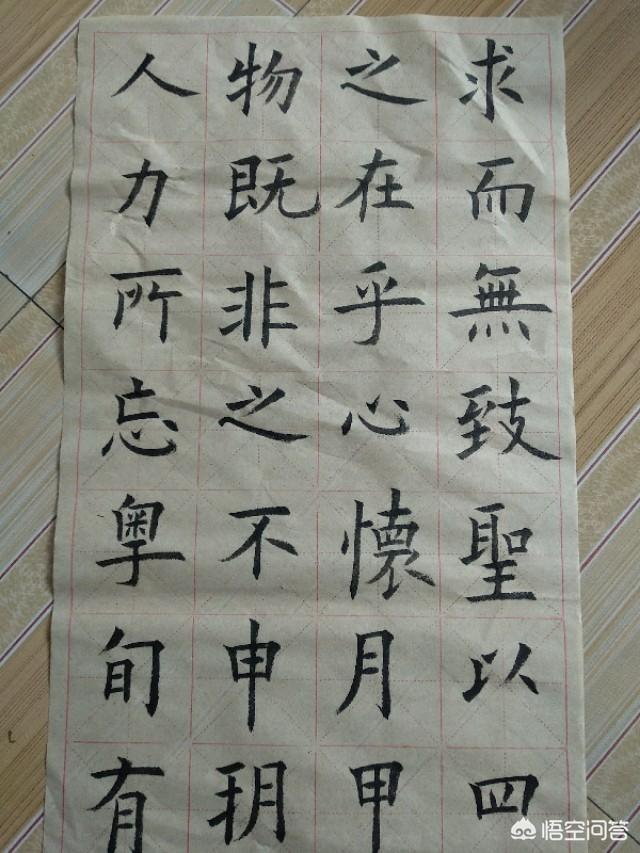 求而無致聖以四
之在乎心懷月甲
物既非之不申玥
人力所忘粤旬有
悟空问答